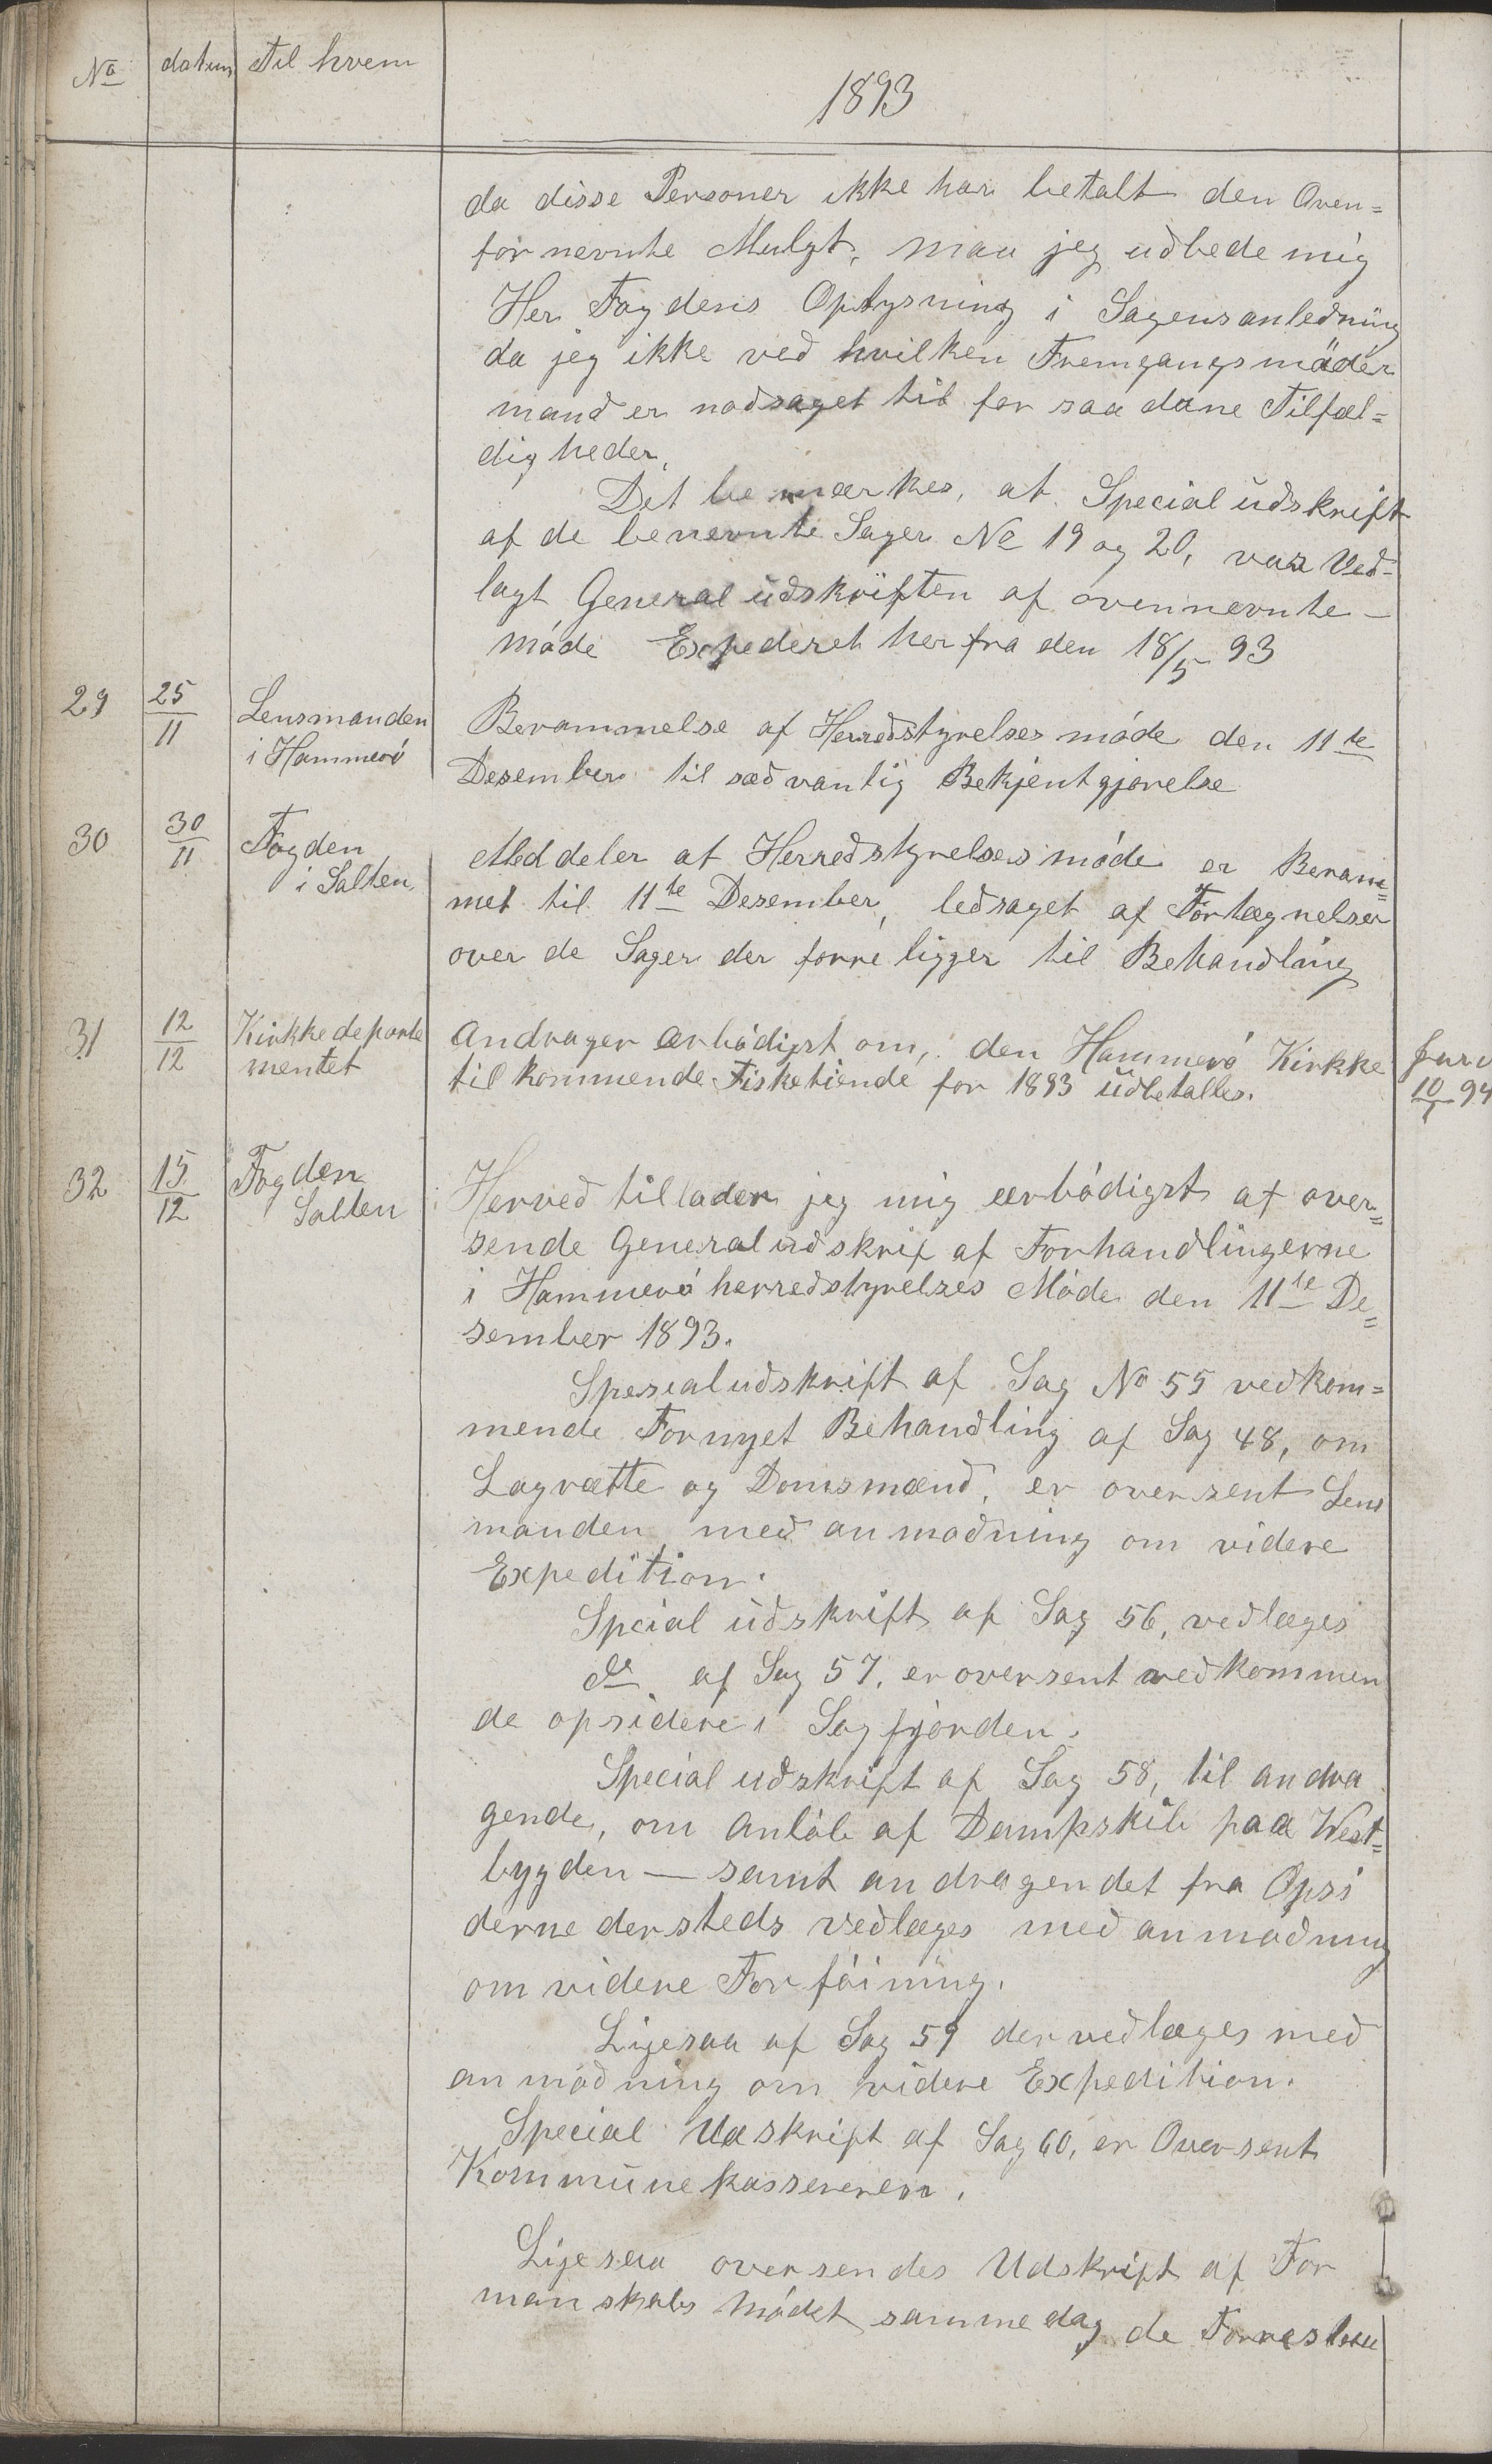 No datum Til hvem
1893
da disse Personer ikke har betalt den Oven=
for nevnte Mulgt, maa jeg udbede mig
Her Fogdens Oplysning i Sagens anledning
da jeg ikke ved hvilken Fremgangsmåder
mand er nødsaget til for saa dane Tilfæl=
digheder,
Det bemærkes, at Special udskrift
af de benevnte Sager No 19 og 20, var Ved-
lagt General udskriften af ovennevnte -
møde Expederet her fra den 18/5 93
29 25/11 Lensmanden
i Hammerø
Berammelse af Herredstyrelses møde den 11te
Desember til sædvanlig Bekjentgjørelse
30 30/11 Fogden
i Salten
Meddeler at Herredstyrelses møde er Beram=
met til 11te Desember, ledsaget af Fortegnelser
over de Sager der forre ligger til Behandling
31 12/12 Kirkkedeparte
mentet
Andrager ærbødigst om, den Hammerø Kirkke
til kommende Fisketiende for 1893 udbetalles.
10/1 94
32 15/12 Fogden
Salten
Herved tillader jeg mig ærbødigst at over=
sende Generaludskrif af Forhandlingerne
i Hammerø herredstyrelses Møde den 11te De=
sember 1893.
Spesialudskrift af Sag No 55 vedkom=
mende Fornyet Behandling af Sag 48, om
Lagrætte og Domsmænd, er oversent Lens
manden med anmodning om videre
Expedition.
Spcial udskrift af Sag 56, vedlæges
do af Sag 57, er oversent vedkommen
de opsidere i Sagfjorden.
Special udskrift af Sag 58, til andra
gende, om Anløb af Dampskib paa West=
bygden — samt andragendet fra Opsi
derne dersteds vedlæges med anmodning
om videre Forføining.
Ligesaa af Sag 59 der vedlæges med
anmodning om videre Expedition.
Special Udskrift af Sag 60, er Oversent
Kommunekassereren.
Ligesaa oversendes Udskrift af For
manskabs mødet samme dag de